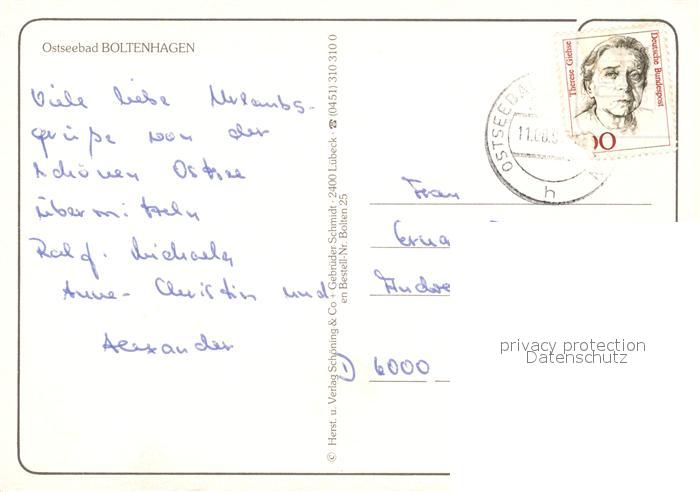 Ostseebad BOLTENHAGEN
Viele liebe Urlaubs-
grüße von der
schönen Ostsee
übermitteln
Ralf, Michaela
Anne-Christin und
Alexander
© Herst. u. Verlag Schöning & Co + Gebrüder Schmidt · 2400 Lübeck · ☎ (0451) 310 310 0
en Bestell-Nr. Bolten 25
Therese Giehse
Deutsche Bundespost
OSTSEEBA
11.08.9
h
Frau
Erna
D 6000
privacy protection
Datenschutz